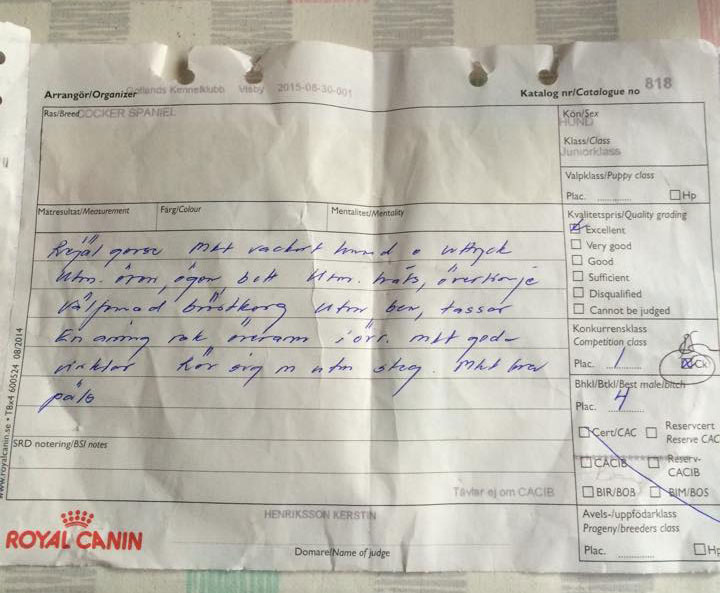 Arrangör/Organizer Gotlands Kennelklubb Visby 2015-08-30-001
Katalog nr/Catalogue no 818
Ras/Breed COCKER SPANIEL
Kön/Sex
HUND
Klass/Class
Juniorklass
Valpklass/Puppy class
Plac. .......... Hp
Mätresultat/Measurement Färg/Colour Mentalitet/Mentality
Kvalitetspris/Quality grading
Excellent
Very good
Good
Sufficient
Disqualified
Cannot be judged
Rejäl gosse Mkt vackert huvud o uttryck
Utm. öron, ögon, bett Utm. hals, överlinje
Välformad bröstkorg Utm ben, tassar
En aning rak överarm i övr. mkt god-
vinklar Rör sig m utm steg. Mkt bra
päls
Konkurrensklass
Competition class
Plac. 1 Ck
Bhkl/Btkl/Best male/bitch
Plac. 4
Cert/CAC Reservcert
Reserve CAC
CACIB Reserv-
CACIB
BIR/BOB BIM/BOS
SRD notering/BSI notes
Tävlar ej om CACIB
Avels-/uppfödarklass
Progeny/breeders class
Plac. .......... Hp
HENRIKSSON KERSTIN
Domare/Name of judge
ROYAL CANIN
www.royalcanin.se • TBx4 600524 08/2014